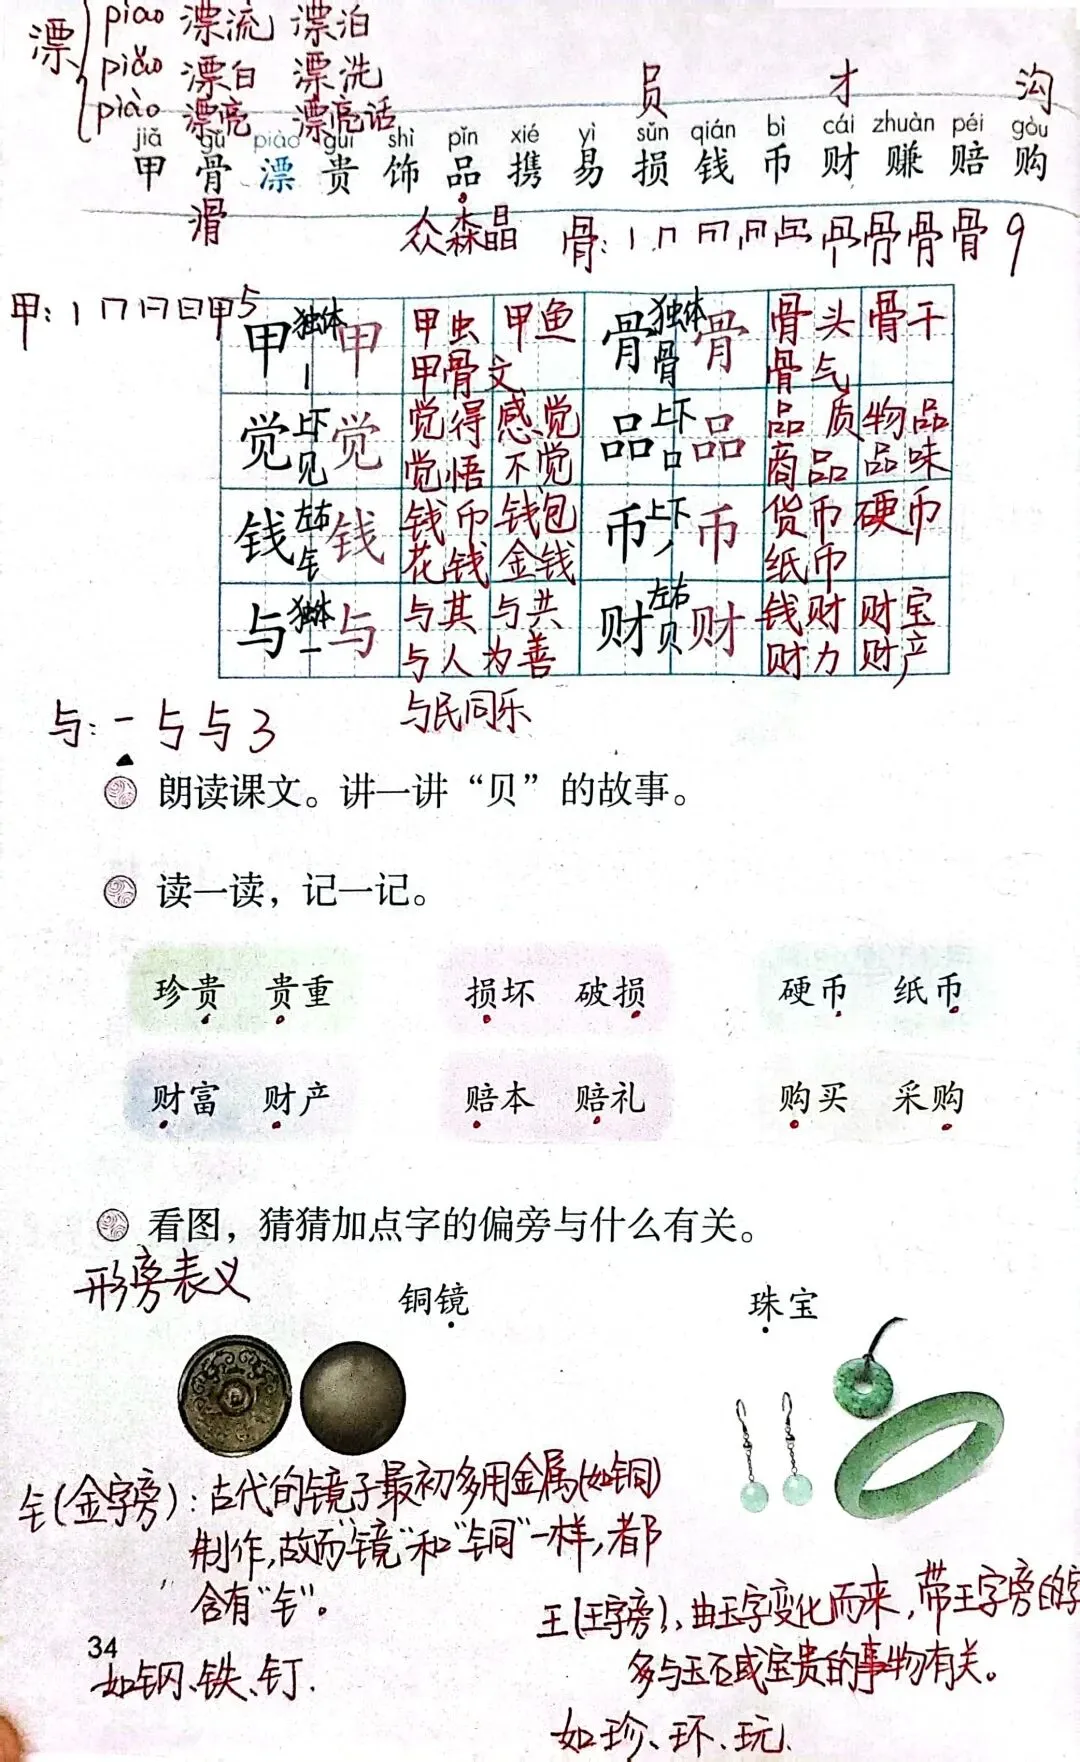 漂 piāo 漂流 漂泊
piǎo 漂白 漂洗
piào 漂亮 漂亮话
员 才 沟
jiǎ gǔ piào guì shì pǐn xié yì sǔn qián bì cái zhuàn péi gòu
甲 骨 漂 贵 饰 品 携 易 损 钱 币 财 赚 赔 购
滑 众森晶 骨: 9
甲: 5
甲 独体 丨 甲 甲虫 甲鱼 甲骨文
骨 独体 骨 骨 骨头 骨干 骨气
觉 上下 见 觉 觉得 感觉 觉悟 不觉
品 上下 口 品 品质 物品 商品 品味
钱 左右 钅 钱 钱币 钱包 花钱 金钱
币 上下 丿 币 货币 硬币 纸币
与 独体 一 与 与其 与共 与人为善
财 左右 贝 财 钱财 财宝 财力 财产
与: 一 与 与 3 与民同乐
朗读课文。讲一讲“贝”的故事。
读一读，记一记。
珍贵 贵重 损坏 破损 硬币 纸币
财富 财产 赔本 赔礼 购买 采购
看图，猜猜加点字的偏旁与什么有关。
形旁表义
铜镜 珠宝
钅(金字旁)：古代的镜子最初多用金属(如铜)
制作,故而“镜”和“铜”一样,都
含有“钅”。
34
如钢、铁、钉.
王(王字旁)、由玉字变化而来,带王字旁的字
多与玉石或宝贵的事物有关。
如珍、环、玩.